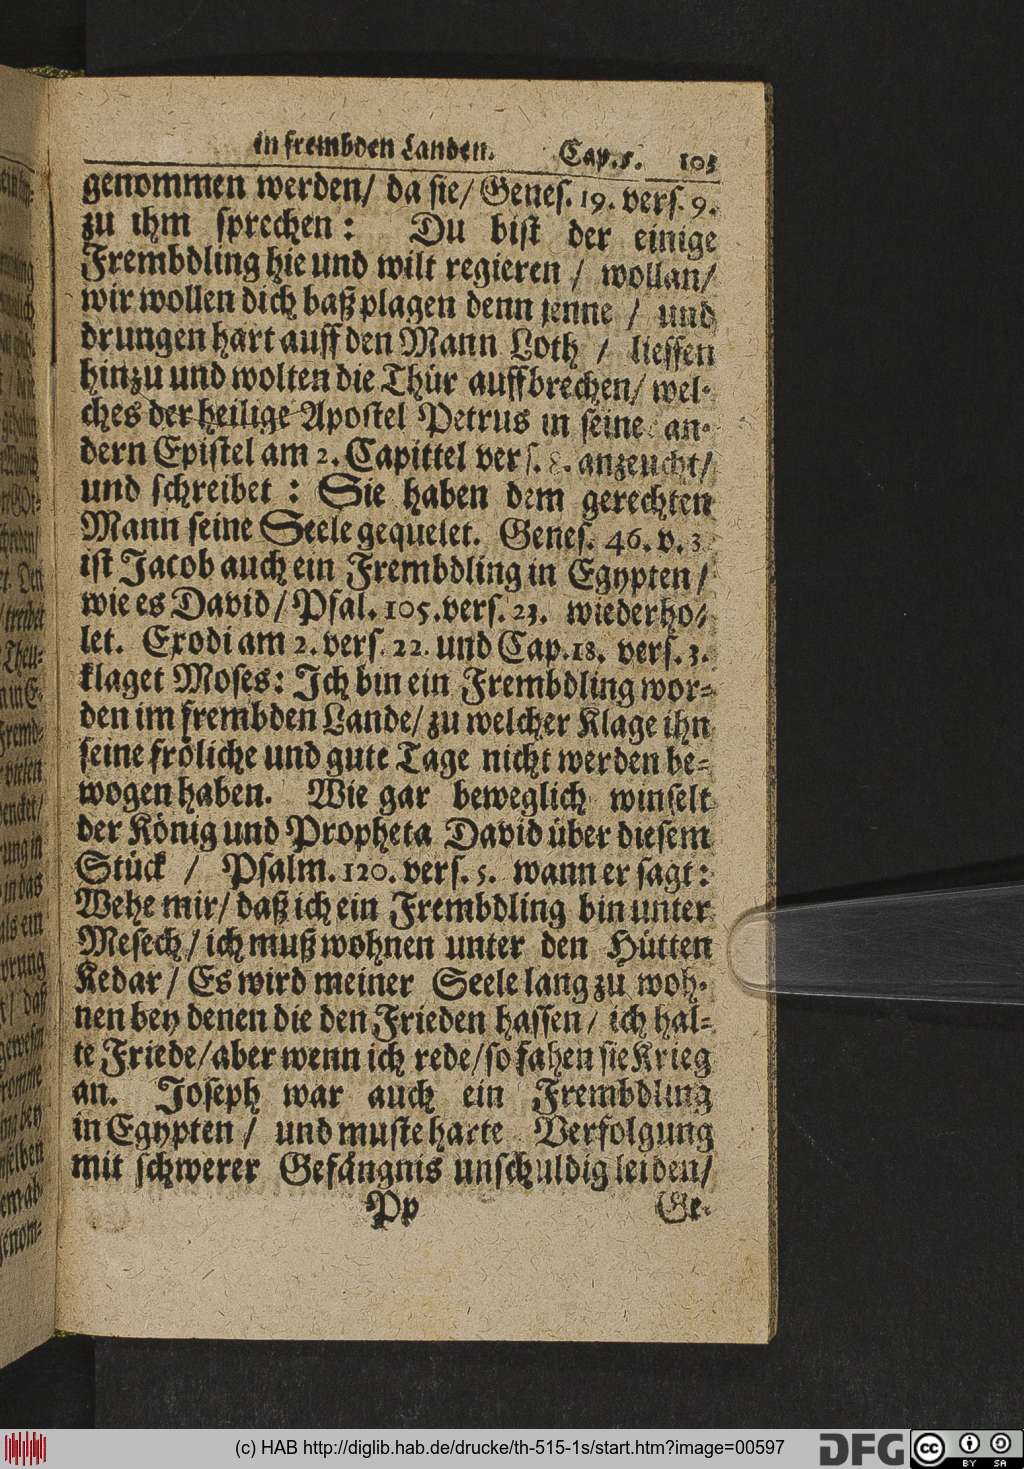 in frembden Landen. Cap. 5. 103
genommen werden/ da sie/ Genes. 19. vers. 9.
zu ihm sprechen: Du bist der einige
Frembdling hie und wilt regieren / wollan/
wir wollen dich baß plagen denn jenne / und
drungen hart auff den Mann Loth / lieffen
hinzu und wolten die Thür auffbrechen/ wel-
ches der heilige Apostel Petrus in seine an-
dern Epistel am 2. Capittel vers. 8. anzeucht/
und schreibet : Sie haben dem gerechten
Mann seine Seele gequelet. Genes. 46. v. 3
ist Jacob auch ein Frembdling in Egypten /
wie es David / Psal. 105. vers. 23. wiederho-
let. Exodi am 2. vers. 22. und Cap. 18. vers. 3.
klaget Moses: Ich bin ein Frembdling wor-
den im frembden Lande/ zu welcher Klage ihn
seine fröliche und gute Tage nicht werden be-
wogen haben. Wie gar beweglich winselt
der König und Propheta David über diesem
Stück / Psalm. 120. vers. 5. wann er sagt:
Wehe mir/ daß ich ein Frembdling bin unter
Mesech/ ich muß wohnen unter den Hütten
Kedar / Es wird meiner Seele lang zu woh-
nen bey denen die den Frieden hassen/ ich hal-
te Friede/ aber wenn ich rede/ so fahen sie Krieg
an. Joseph war auch ein Frembdling
in Egypten / und muste harte Verfolgung
mit schwerer Gefängnis unschuldig leiden/
Pp Ge-
(c) HAB http://diglib.hab.de/drucke/th-515-1s/start.htm?image=00597
DFG
cc BY SA